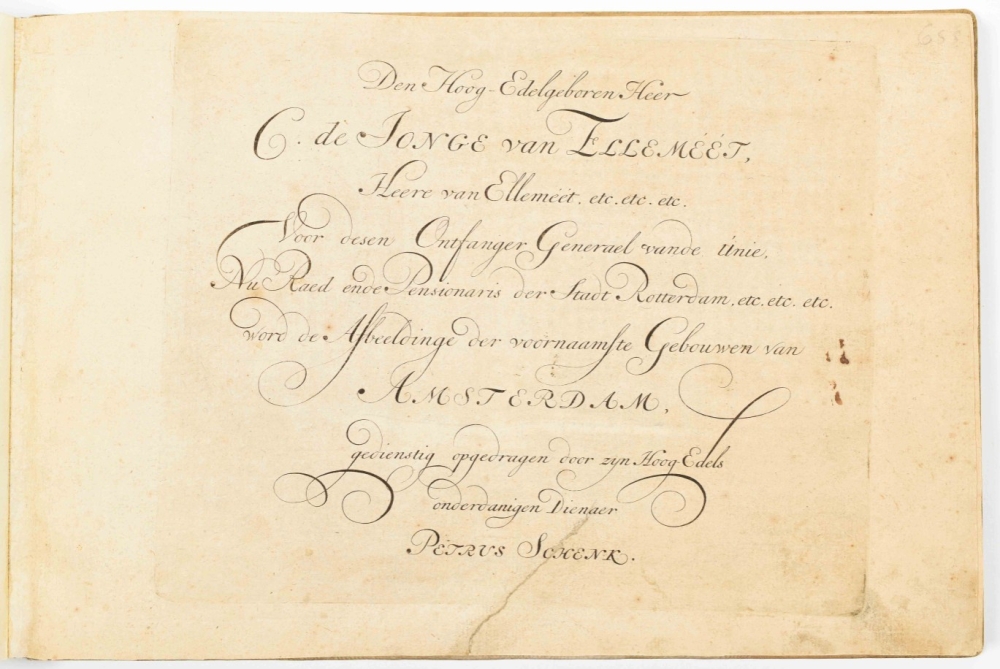 688
Den Hoog-Edelgeboren Heer
C. de Jonge van Elleméét,
Heere van Elleméét, etc. etc. etc.
Voor desen Ontfanger Generael vande Unie,
Nu Raed ende Pensionaris der Stadt Rotterdam, etc. etc. etc.
word de Afbeeldinge der voornaamste Gebouwen van
AMSTERDAM,
gedienstig opgedragen door zyn Hoog-Edels
onderdanigen Dienaer
PETRUS SCHENK.